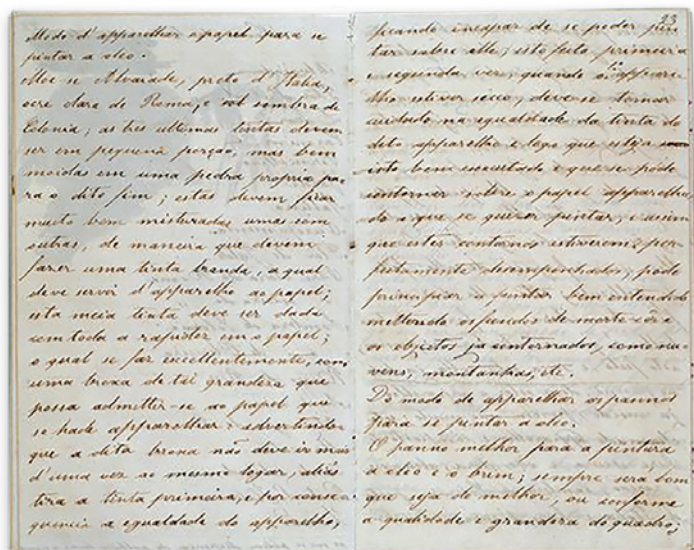 Modo d'apparelhar o papel para se
pintar a oleo.
Moe se Alvaiade, preto d'Italia,
ocre clara de Roma, e sombra de
Colonia; as tres ultimas tintas devem
ser em pequena porção, mas bem
moidas em uma pedra propria pa-
ra o dito fim; estas devem ficar
muito bem misturadas umas com
outras, de maneira que devem
fazer uma tinta branda, a qual
deve servir d'apparelho ao papel;
esta meia tinta deve ser dada
com toda a rapidez em o papel;
o qual se faz excellentemente, com
uma broxa de tal grandeza que
possa admetter-se ao papel que
se hade apparelhar: advertindo
que a dita broxa não deve ir mais
d'uma vez ao mesmo logar, aliás
tira a tinta primeira, e por conse-
quencia a egualdade do apparelho,
23
ficando incapaz de se poder pin-
tar sobre elle; isto feito primeira
e segunda vez, quando o appare-
lho estiver secco, deve-se tomar
cuidado na egualdade da tinta do
dito apparelho e logo que esteja
isto bem executado e que se póde
contornar sobre o papel apparelha-
do o que se quizer pintar; e assim
que estes contornos estiverem per-
feitamente desempenhados, pode
principiar a pintar bem entendido
mettendo os fundos de morte côr a
os objectos ja contornados, como nu-
vens, montanhas, etc.
Do modo de apparelhar os pannos
para se pintar a oleo.
O panno melhor para a pintura
a oleo é o brim; sempre será bom
que seja do melhor, ou conforme
a qualidade e grandeza do quadro;